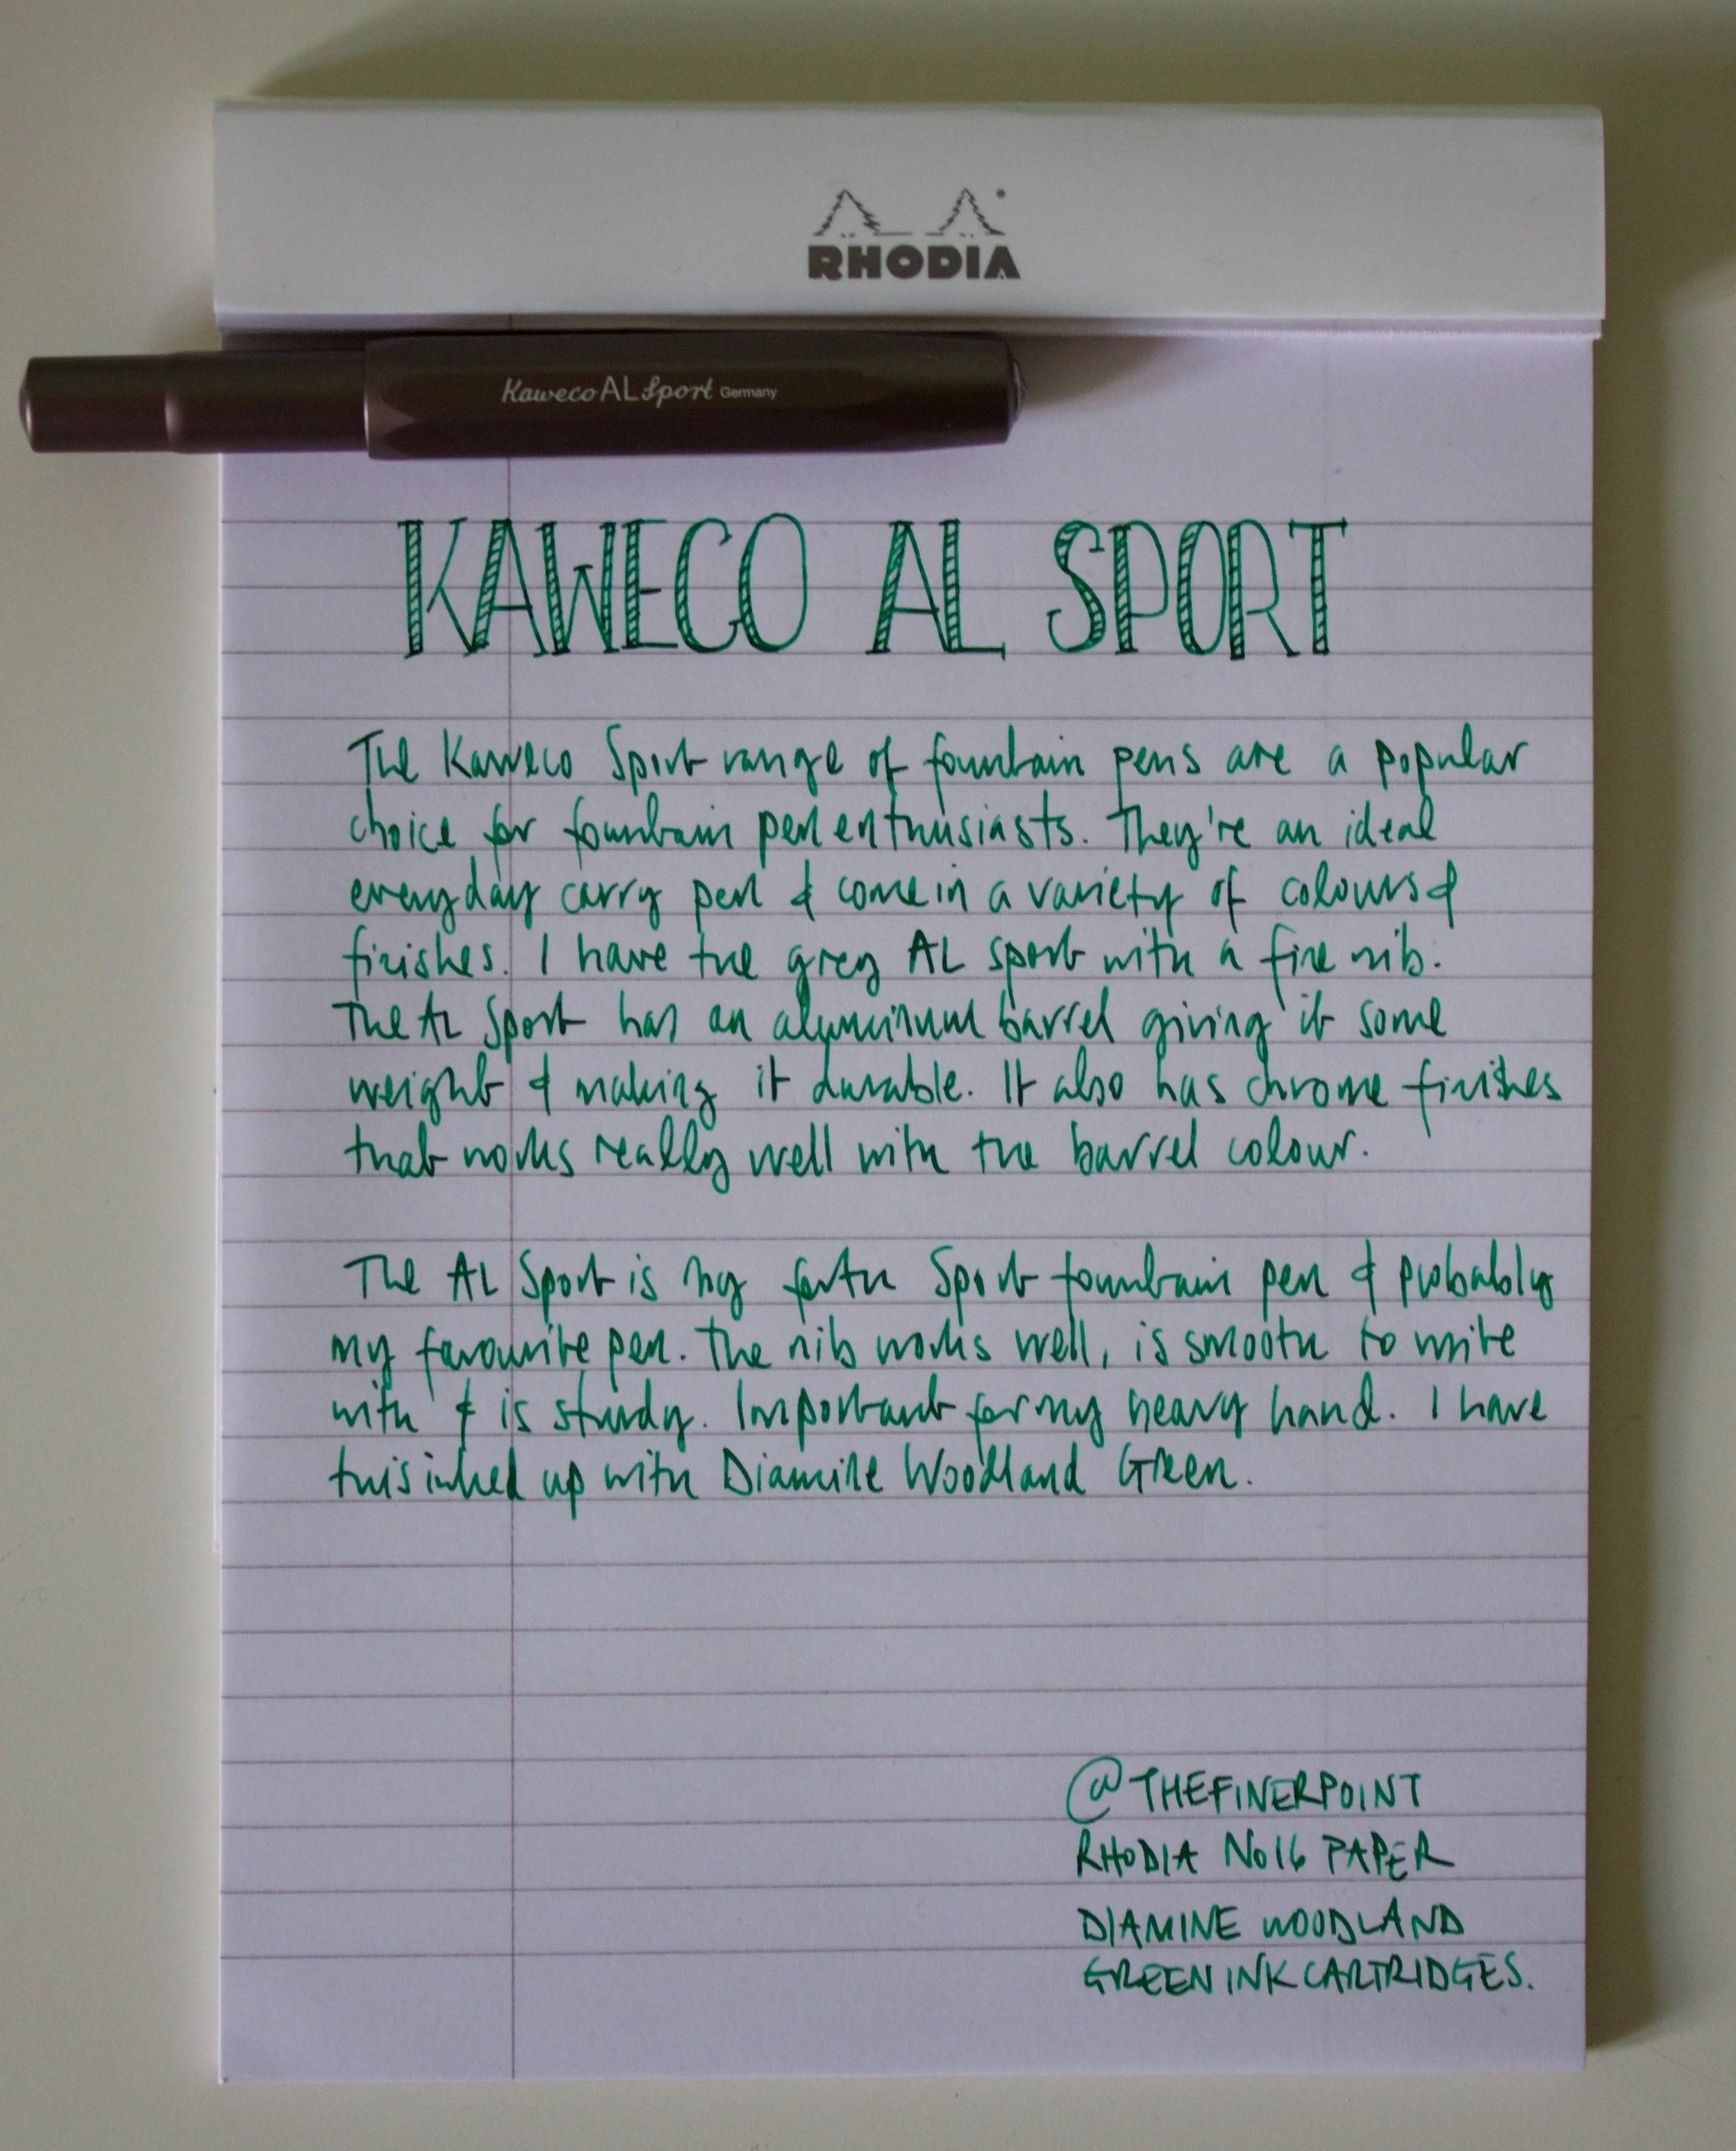 RHODIA
Kaweco AL Sport Germany
KAWECO AL SPORT
The Kaweco Sport range of fountain pens are a popular
choice for fountain pen enthusiasts. They're an ideal
everyday carry pen & come in a variety of colours &
finishes. I have the grey AL Sport with a fine nib.
The AL Sport has an aluminium barrel giving it some
weight & making it durable. It also has chrome finishes
that works really well with the barrel colour.
The AL Sport is my Sport fountain pen & probably
my favourite pen. The nib works well, is smooth to write
with & is sturdy. Important for my heavy hand. I have
this inked up with Diamine Woodland Green.
@THEFINERPOINT
RHODIA No16 PAPER
DIAMINE WOODLAND
GREEN INK CARTRIDGES.